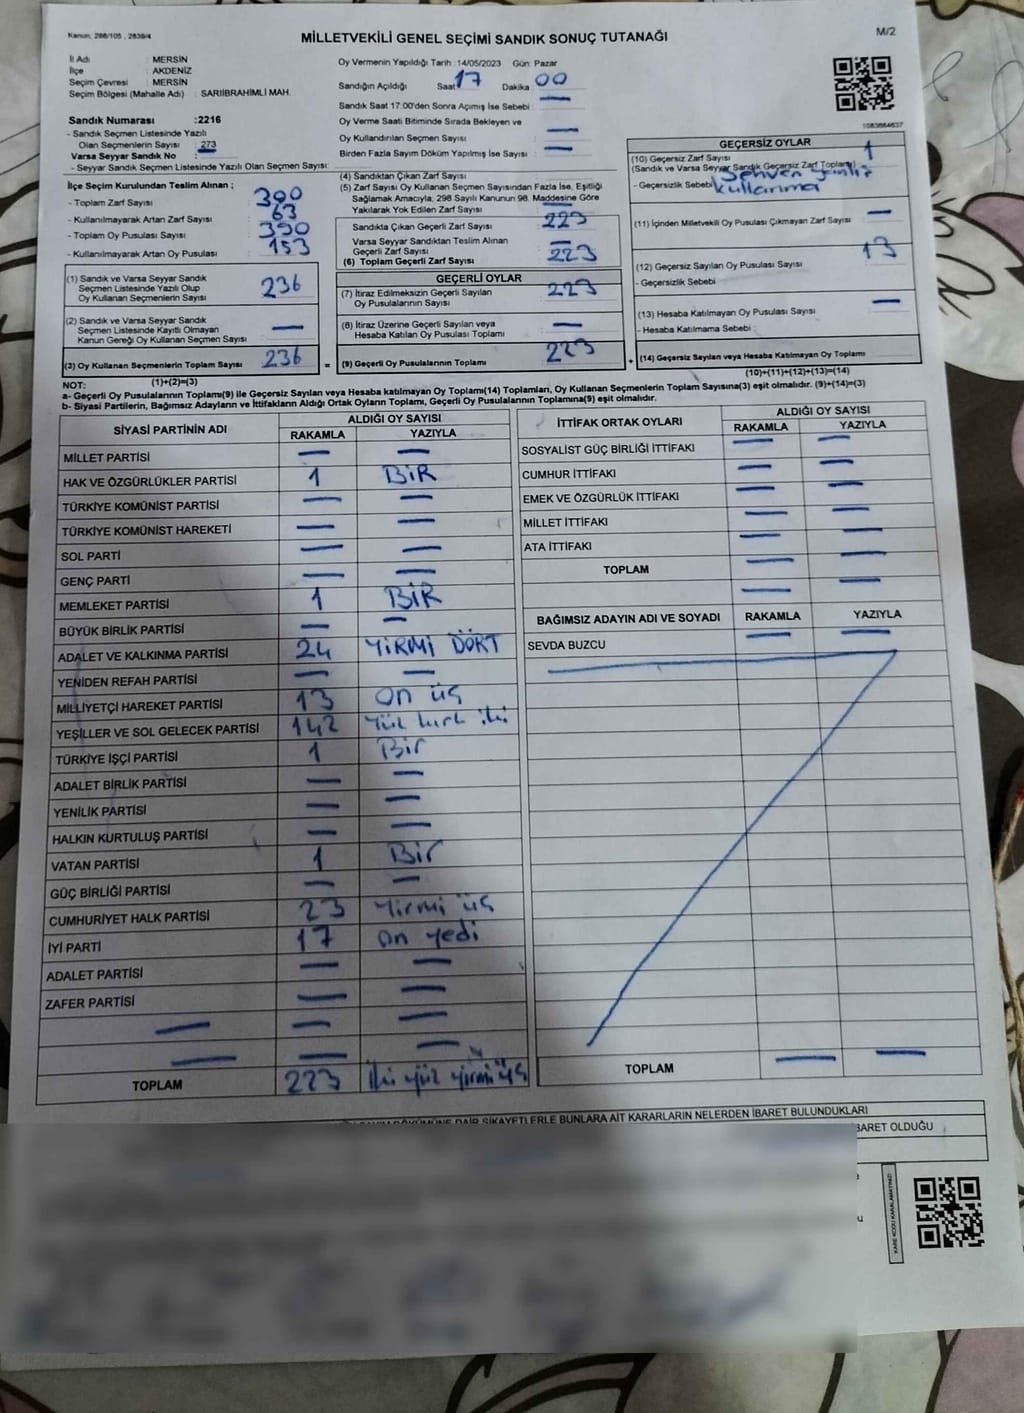 Kanun, 298/105 , 2839/4
MİLLETVEKİLİ GENEL SEÇİMİ SANDIK SONUÇ TUTANAĞI
M/2
İl Adı : MERSİN
İlçe : AKDENİZ
Seçim Çevresi : MERSİN
Seçim Bölgesi (Mahalle Adı) : SARIİBRAHİMLİ MAH.
Sandık Numarası :2216
- Sandık Seçmen Listesinde Yazılı
Olan Seçmenlerin Sayısı : 273
Varsa Seyyar Sandık No :
- Seyyar Sandık Seçmen Listesinde Yazılı Olan Seçmen Sayısı:
Oy Vermenin Yapıldığı Tarih :14/05/2023 Gün: Pazar
Sandığın Açıldığı Saat 17 Dakika 00
Sandık Saat 17:00'den Sonra Açımış İse Sebebi : —
Oy Verme Saati Bitiminde Sırada Bekleyen ve
Oy Kullandırılan Seçmen Sayısı : —
Birden Fazla Sayım Döküm Yapılmış İse Sayısı : —
İlçe Seçim Kurulundan Teslim Alınan ;
- Toplam Zarf Sayısı : 300
- Kullanılmayarak Artan Zarf Sayısı : 63
- Toplam Oy Pusulası Sayısı
- Kullanılmayarak Artan Oy Pusulası : 153
(1) Sandık ve Varsa Seyyar Sandık
Seçmen Listesinde Yazılı Olup
Oy Kullanan Seçmenlerin Sayısı 236
(2) Sandık ve Varsa Seyyar Sandık
Seçmen Listesinde Kayıtlı Olmayan
Kanun Gereği Oy Kullanan Seçmen Sayısı —
(3) Oy Kullanan Seçmenlerin Toplam Sayısı 236 =
(1)+(2)=(3)
(4) Sandıktan Çıkan Zarf Sayısı
(5) Zarf Sayısı Oy Kullanan Seçmen Sayısından Fazla İse, Eşitliği
Sağlamak Amacıyla; 298 Sayılı Kanunun 98. Maddesine Göre
Yakılarak Yok Edilen Zarf Sayısı —
Sandıkta Çıkan Geçerli Zarf Sayısı : 223
Varsa Seyyar Sandıktan Teslim Alınan
Geçerli Zarf Sayısı —
(6) Toplam Geçerli Zarf Sayısı : 223
GEÇERLİ OYLAR
(7) İtiraz Edilmeksizin Geçerli Sayılan
Oy Pusulalarının Sayısı : 223
(8) İtiraz Üzerine Geçerli Sayılan veya
Hesaba Katılan Oy Pusulası Toplamı : —
(9) Geçerli Oy Pusulalarının Toplamı : 223 +
1083664637
GEÇERSİZ OYLAR
(10) Geçersiz Zarf Sayısı 1
(Sandık ve Varsa Seyyar Sandık Geçersiz Zarf Toplamı)
- Geçersizlik Sebebi : Sehven
kullanma
(11) İçinden Milletvekili Oy Pusulası Çıkmayan Zarf Sayısı —
(12) Geçersiz Sayılan Oy Pusulası Sayısı 13
- Geçersizlik Sebebi
(13) Hesaba Katılmayan Oy Pusulası Sayısı —
- Hesaba Katılmama Sebebi
(14) Geçersiz Sayılan veya Hesaba Katılmayan Oy Toplamı
(10)+(11)+(12)+(13)=(14)
NOT:
a- Geçerli Oy Pusulalarının Toplamı(9) ile Geçersiz Sayılan veya Hesaba katılmayan Oy Toplamı(14) Toplamları, Oy Kullanan Seçmenlerin Toplam Sayısına(3) eşit olmalıdır. (9)+(14)=(3)
b- Siyasi Partilerin, Bağımsız Adayların ve İttifakların Aldığı Ortak Oyların Toplamı, Geçerli Oy Pusulalarının Toplamına(9) eşit olmalıdır.
SİYASİ PARTİNİN ADI ALDIĞI OY SAYISI
RAKAMLA YAZIYLA
MİLLET PARTİSİ — —
HAK VE ÖZGÜRLÜKLER PARTİSİ 1 BİR
TÜRKİYE KOMÜNİST PARTİSİ — —
TÜRKİYE KOMÜNİST HAREKETİ — —
SOL PARTİ — —
GENÇ PARTİ — —
MEMLEKET PARTİSİ 1 BİR
BÜYÜK BİRLİK PARTİSİ — —
ADALET VE KALKINMA PARTİSİ 24 YİRMİ DÖRT
YENİDEN REFAH PARTİSİ — —
MİLLİYETÇİ HAREKET PARTİSİ 13 on üç
YEŞİLLER VE SOL GELECEK PARTİSİ 142 Yüz kırk iki
TÜRKİYE İŞÇİ PARTİSİ 1 Bir
ADALET BİRLİK PARTİSİ — —
YENİLİK PARTİSİ — —
HALKIN KURTULUŞ PARTİSİ — —
VATAN PARTİSİ 1 Bir
GÜÇ BİRLİĞİ PARTİSİ — —
CUMHURİYET HALK PARTİSİ 23 Yirmi üç
İYİ PARTİ 17 on yedi
ADALET PARTİSİ — —
ZAFER PARTİSİ — —
— — —
— — —
TOPLAM 223 İki yüz yirmi üç
İTTİFAK ORTAK OYLARI ALDIĞI OY SAYISI
RAKAMLA YAZIYLA
SOSYALİST GÜÇ BİRLİĞİ İTTİFAKI — —
CUMHUR İTTİFAKI — —
EMEK VE ÖZGÜRLÜK İTTİFAKI — —
MİLLET İTTİFAKI — —
ATA İTTİFAKI — —
TOPLAM — —
— —
BAĞIMSIZ ADAYIN ADI VE SOYADI RAKAMLA YAZIYLA
SEVDA BUZCU — —
TOPLAM — —
DÖKÜMÜNE DAİR ŞİKAYETLERLE BUNLARA AİT KARARLARIN NELERDEN İBARET BULUNDUKLARI
İBARET OLDUĞU
KARE KODU KARALAMAYINIZ!